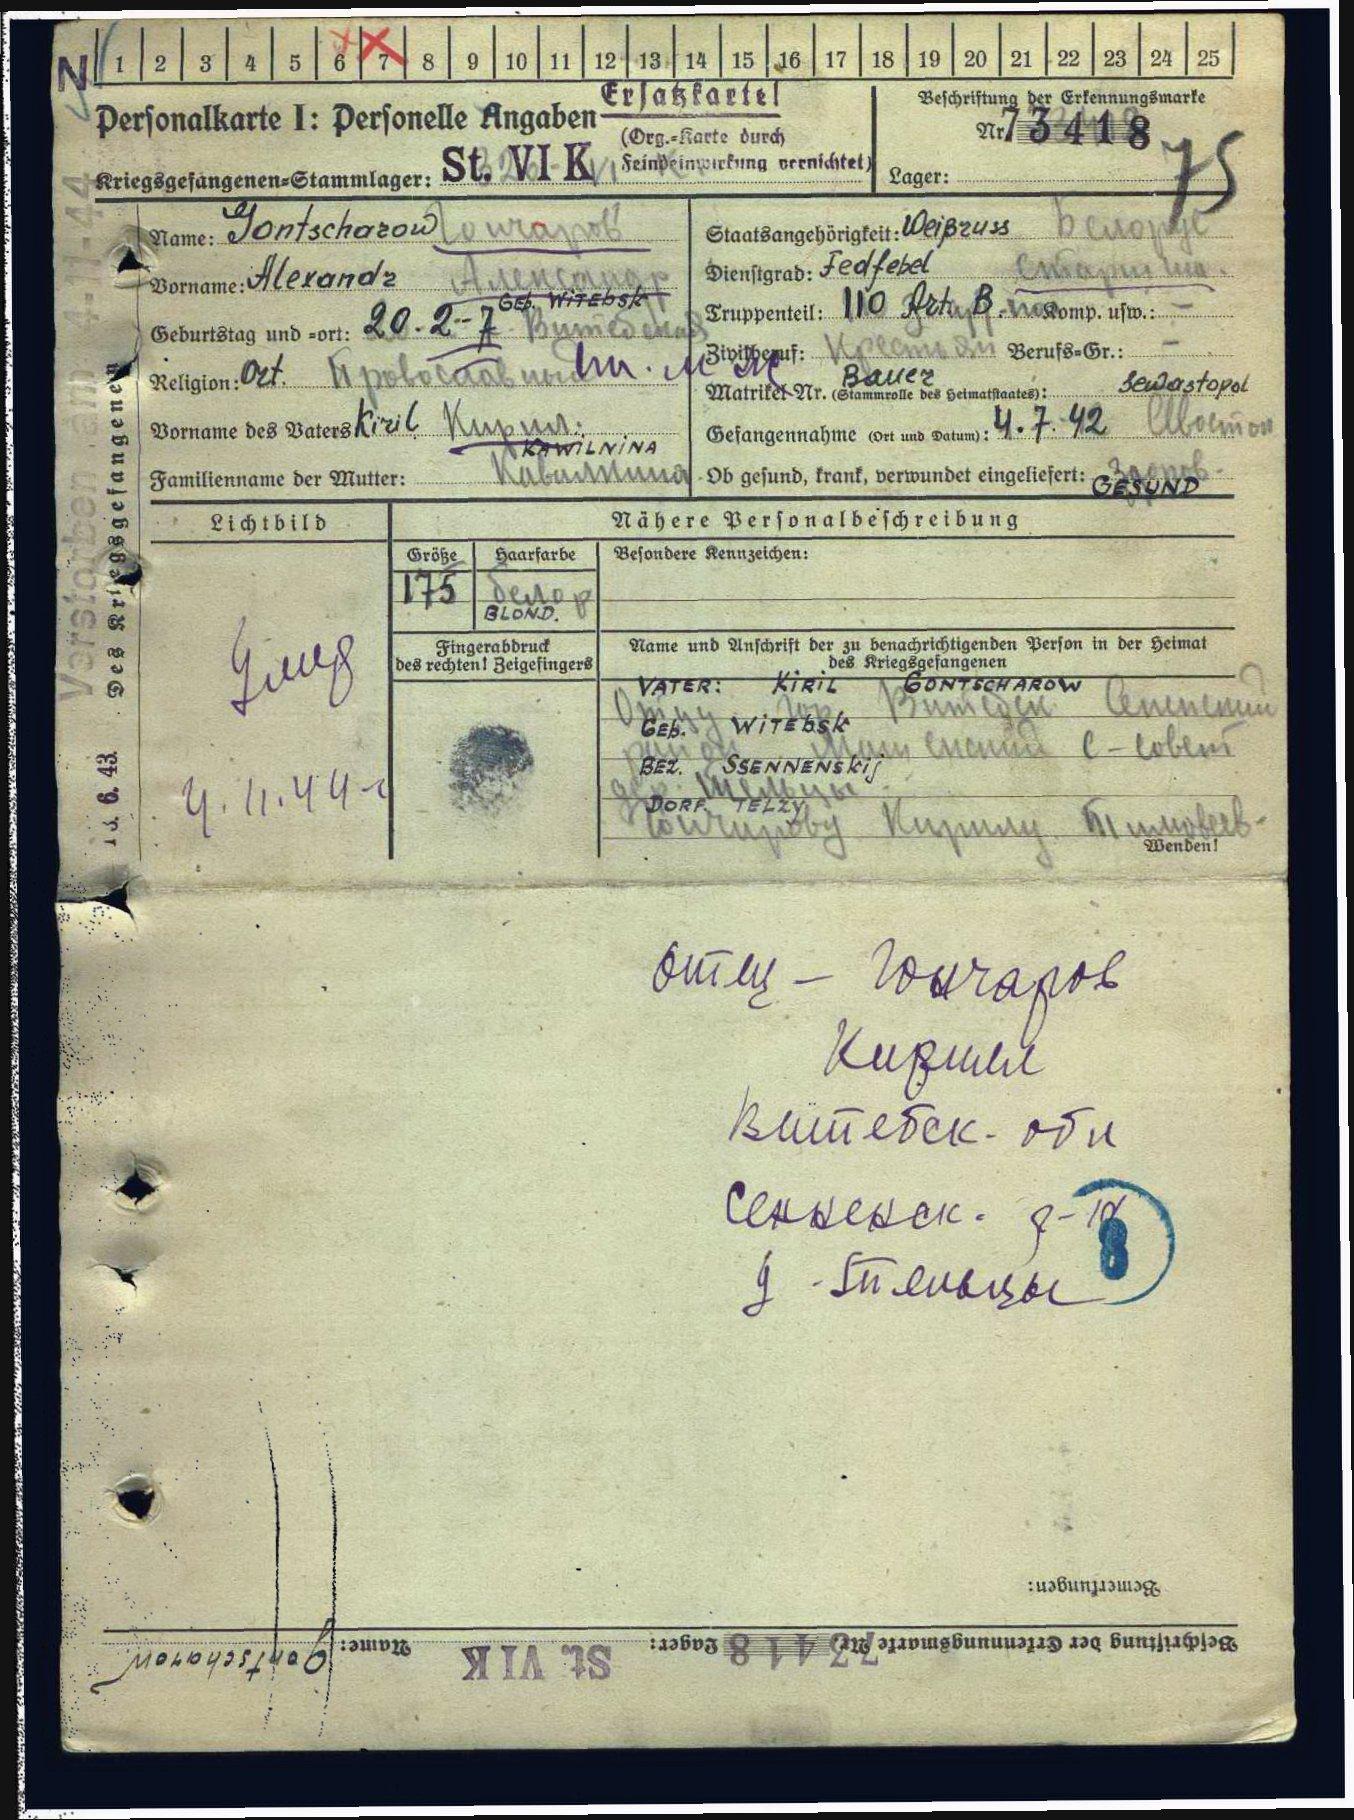 N 1 2 3 4 5 6 7 8 9 10 11 12 13 14 15 16 17 18 19 20 21 22 23 24 25
Personalkarte I: Personelle Angaben
Ersatzkarte!
(Org.=Karte durch
Feindeinwirkung vernichtet)
Kriegsgefangenen=Stammlager: St. VI K
Beschriftung der Erkennungsmarke
Nr. 73418
Lager:
75
Name: Gontscharow Гончаров
Vorname: Alexandr Александр
Geb. WITEBSK
Geburtstag und =ort: 20.2.-7 Витебская
Religion: Ort. Провославный
Vorname des Vaters Kiril Кирил.
KAWILNINA
Familienname der Mutter:
Staatsangehörigkeit: Weißruss Белорус
Dienstgrad: Fedfebel старшина.
Truppenteil: 110 Art. B. Komp. usw.: -
Zivilberuf: Крестьян Berufs=Gr.: -
Bauer
Matrikel Nr. (Stammrolle des Heimatstaates): Sewastopol
Gefangennahme (Ort und Datum): 4.7.42
Ob gesund, krank, verwundet eingeliefert: здоров.
GESUND
Verstorben am 4-11-44
Des Kriegsgefangenen
6. 43
Lichtbild
Умер
4.11.44 г
Nähere Personalbeschreibung
Größe Haarfarbe Besondere Kennzeichen:
175
BLOND.
Fingerabdruck
des rechten! Zeigefingers
Name und Anschrift der zu benachrichtigenden Person in der Heimat
des Kriegsgefangenen
VATER: KIRIL GONTSCHAROW
Отцу гор Витебск Сененский
Geb. WITEBSK
район с-совет
BEZ. SSENNENSKIJ
дер. Тельцы
DORF. TELZY
Гончарову Кирилу Тимовеев-
Wenden!
отец - Гончаров
Кирилл
Витебск. обл
Сенненск. р-н
8
д - Тельцы
Bemerkungen:
Beschriftung der Erkennungsmarke Nr. 73418 Lager: St. VI K Name: Gontscharow